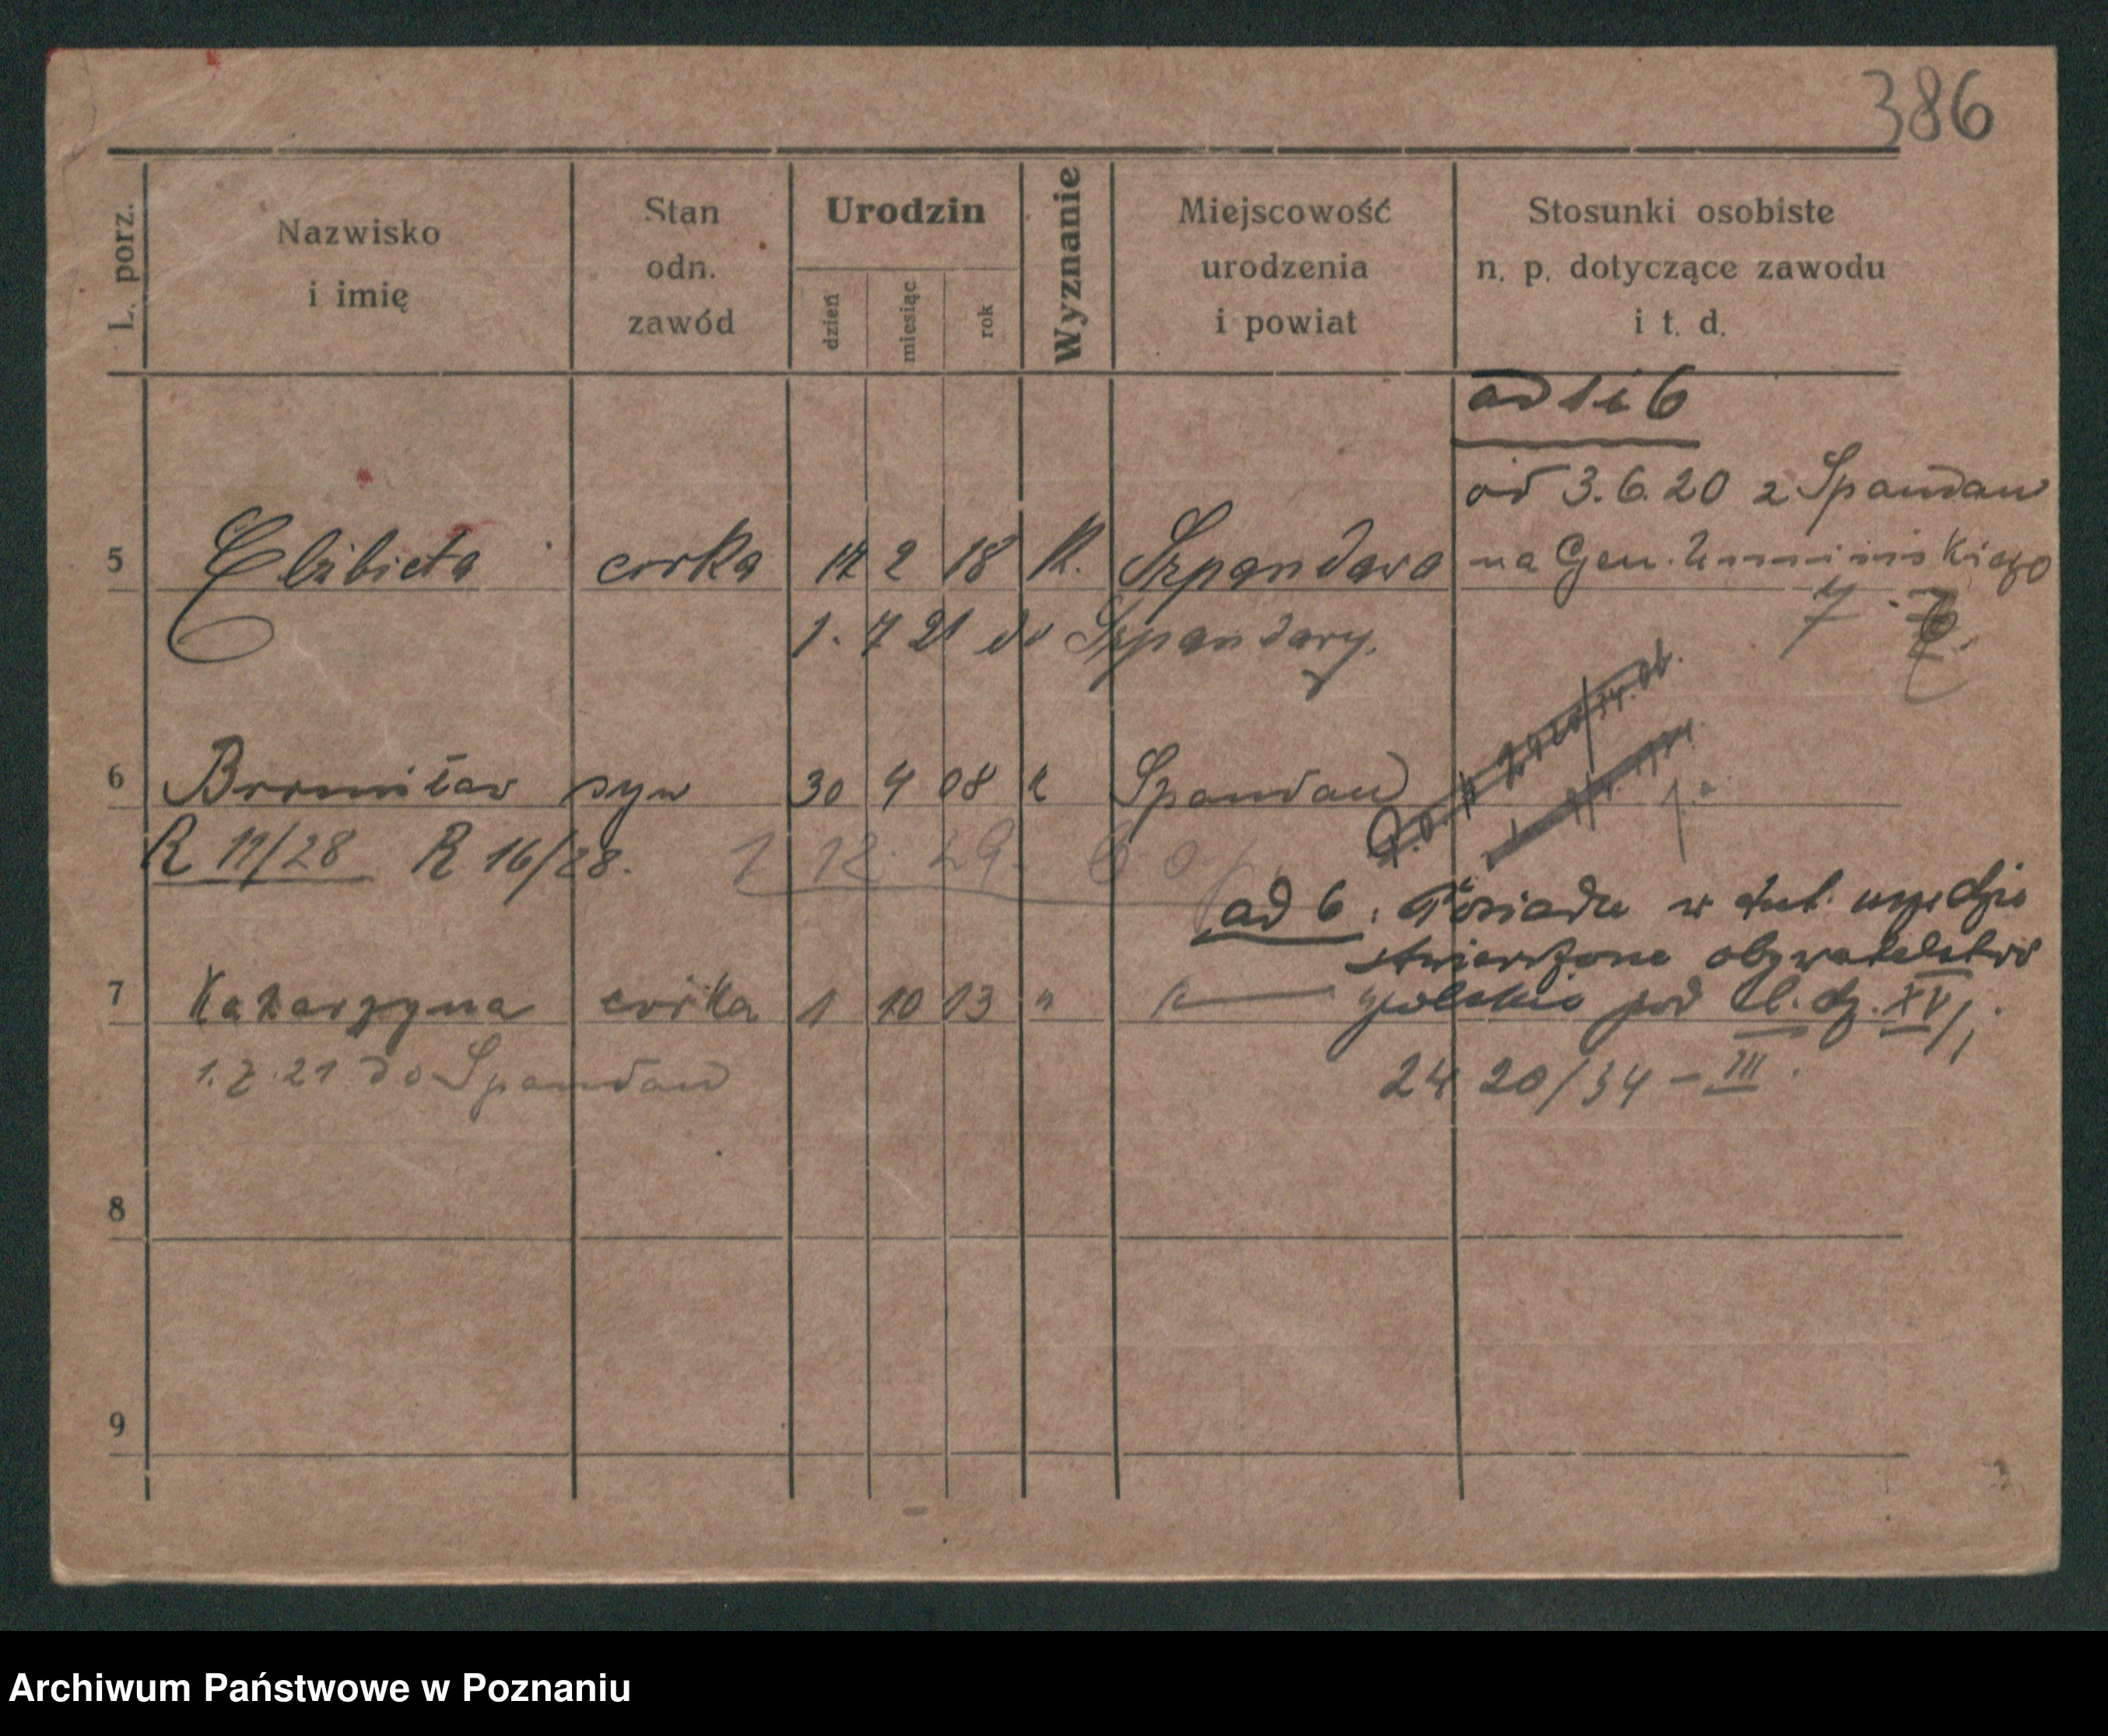 386
L. porz.
Nazwisko
i imię
Stan
odn.
zawód
Urodzin
dzień
miesiąc
rok
Wyznanie
Miejscowość
urodzenia
i powiat
Stosunki osobiste
n. p. dotyczące zawodu
i t. d.
ad 1 i 6
od 3.6.20 z Spandau
5 Elżbieta corka 2 18 K. Szpandawa na Gen. Umińskiego
1. 7 21 do Szpandawy.
6 Bronisław syn 30 4 08 k Spandau
R 11/28 R 16/28. 1 12. 29.
ad 6: Posiada w tut. urzędzie
stwierdzone obywatelstwo
7 Katarzyna córka 1 10 13 " polskie pod l. dz. XV/
1.7.21 do Spandau
2420/34 – III.
8
9
Archiwum Państwowe w Poznaniu